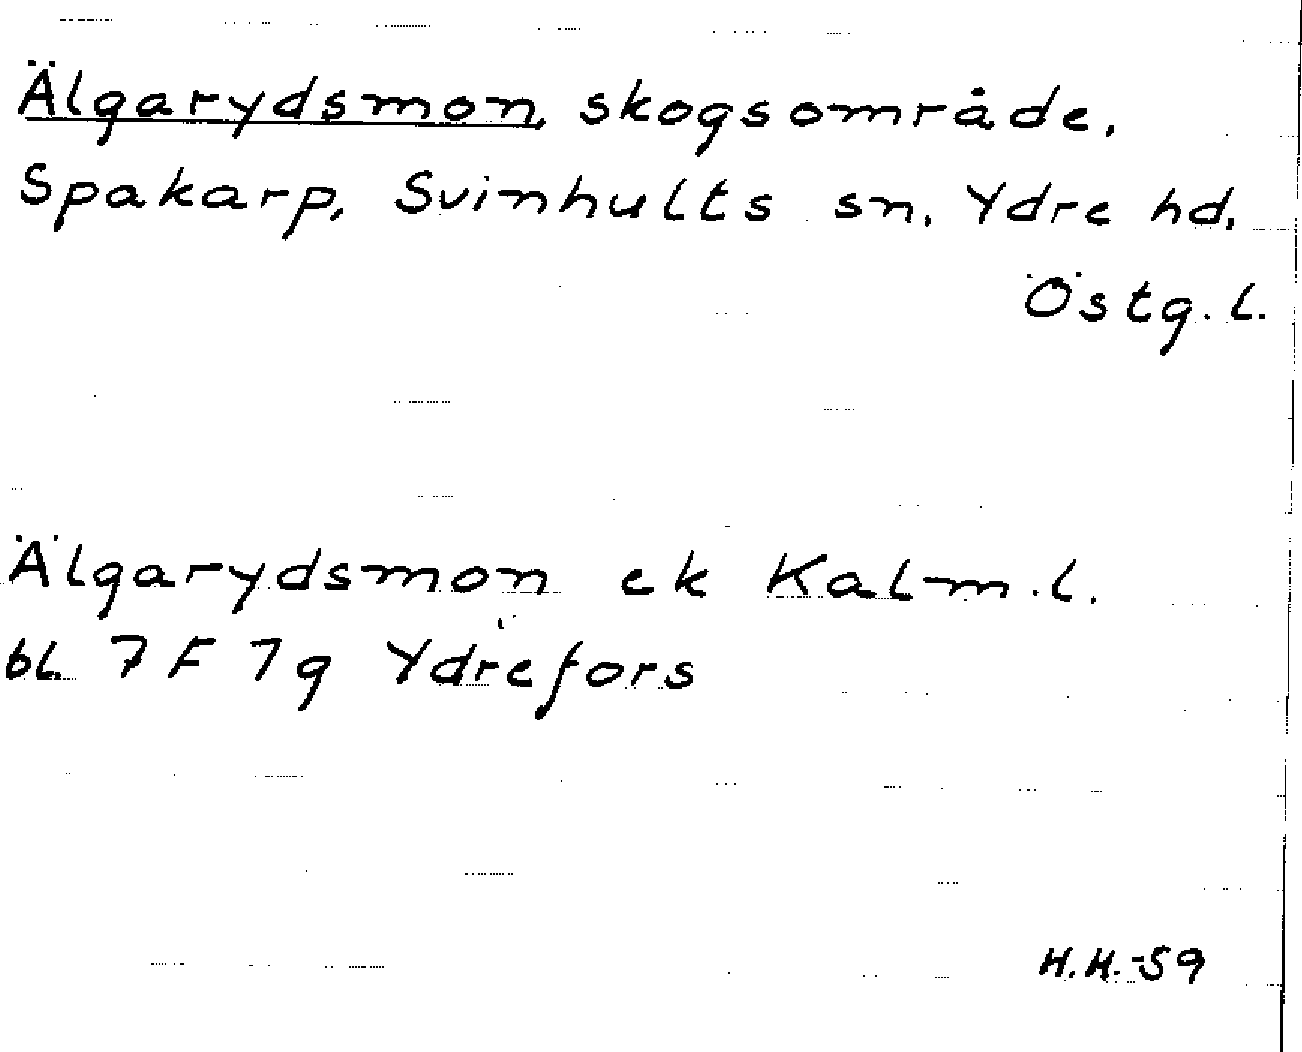 Älgarydsmon, skogsområde.
Spakarp, Svinhults sn, Ydre hd,
Östg. l.
Älgarydsmon ek Kalm. l.
bl. 7 F 7g Ydrefors
H.H.-59